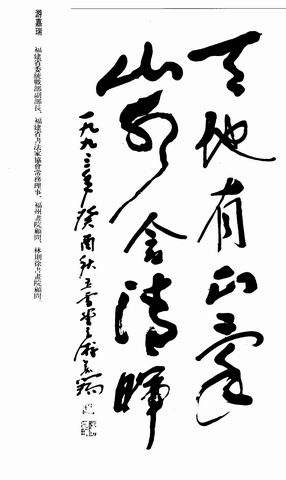 天地有正氣
山水含清暉
一九九三年癸酉秋 游嘉瑞
游嘉瑞 福建省委統戰部副部長、福建省書法家協會常務理事、福州畫院顧問、林則徐書畫院顧問。